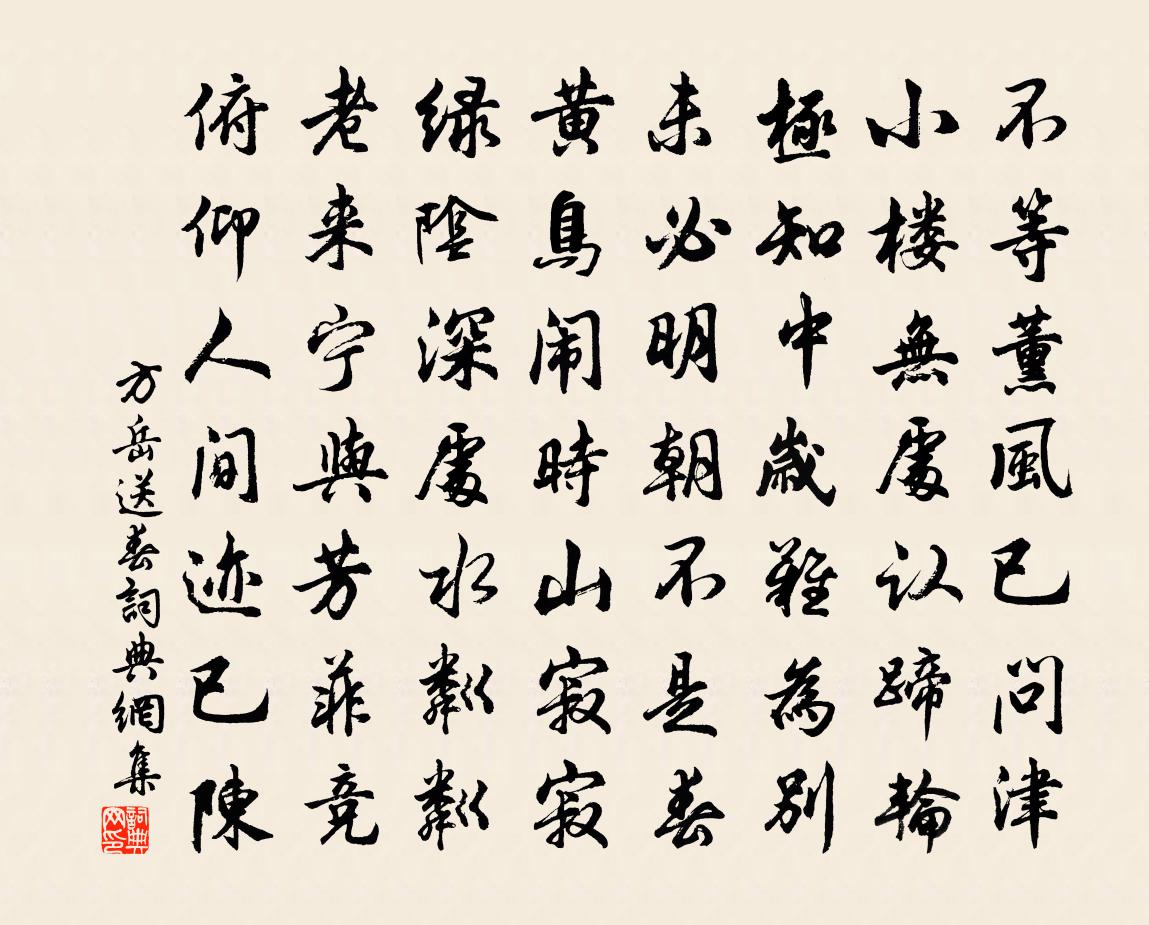 不等薰風已問津
小楼無處认蹄輪
極知中歲難為別
未必明朝不是春
黄鳥闹時山寂寂
绿陰深處水粼粼
老来宁與芳菲竞
俯仰人间迹已陳
方岳送春詞典網集
詞典网印